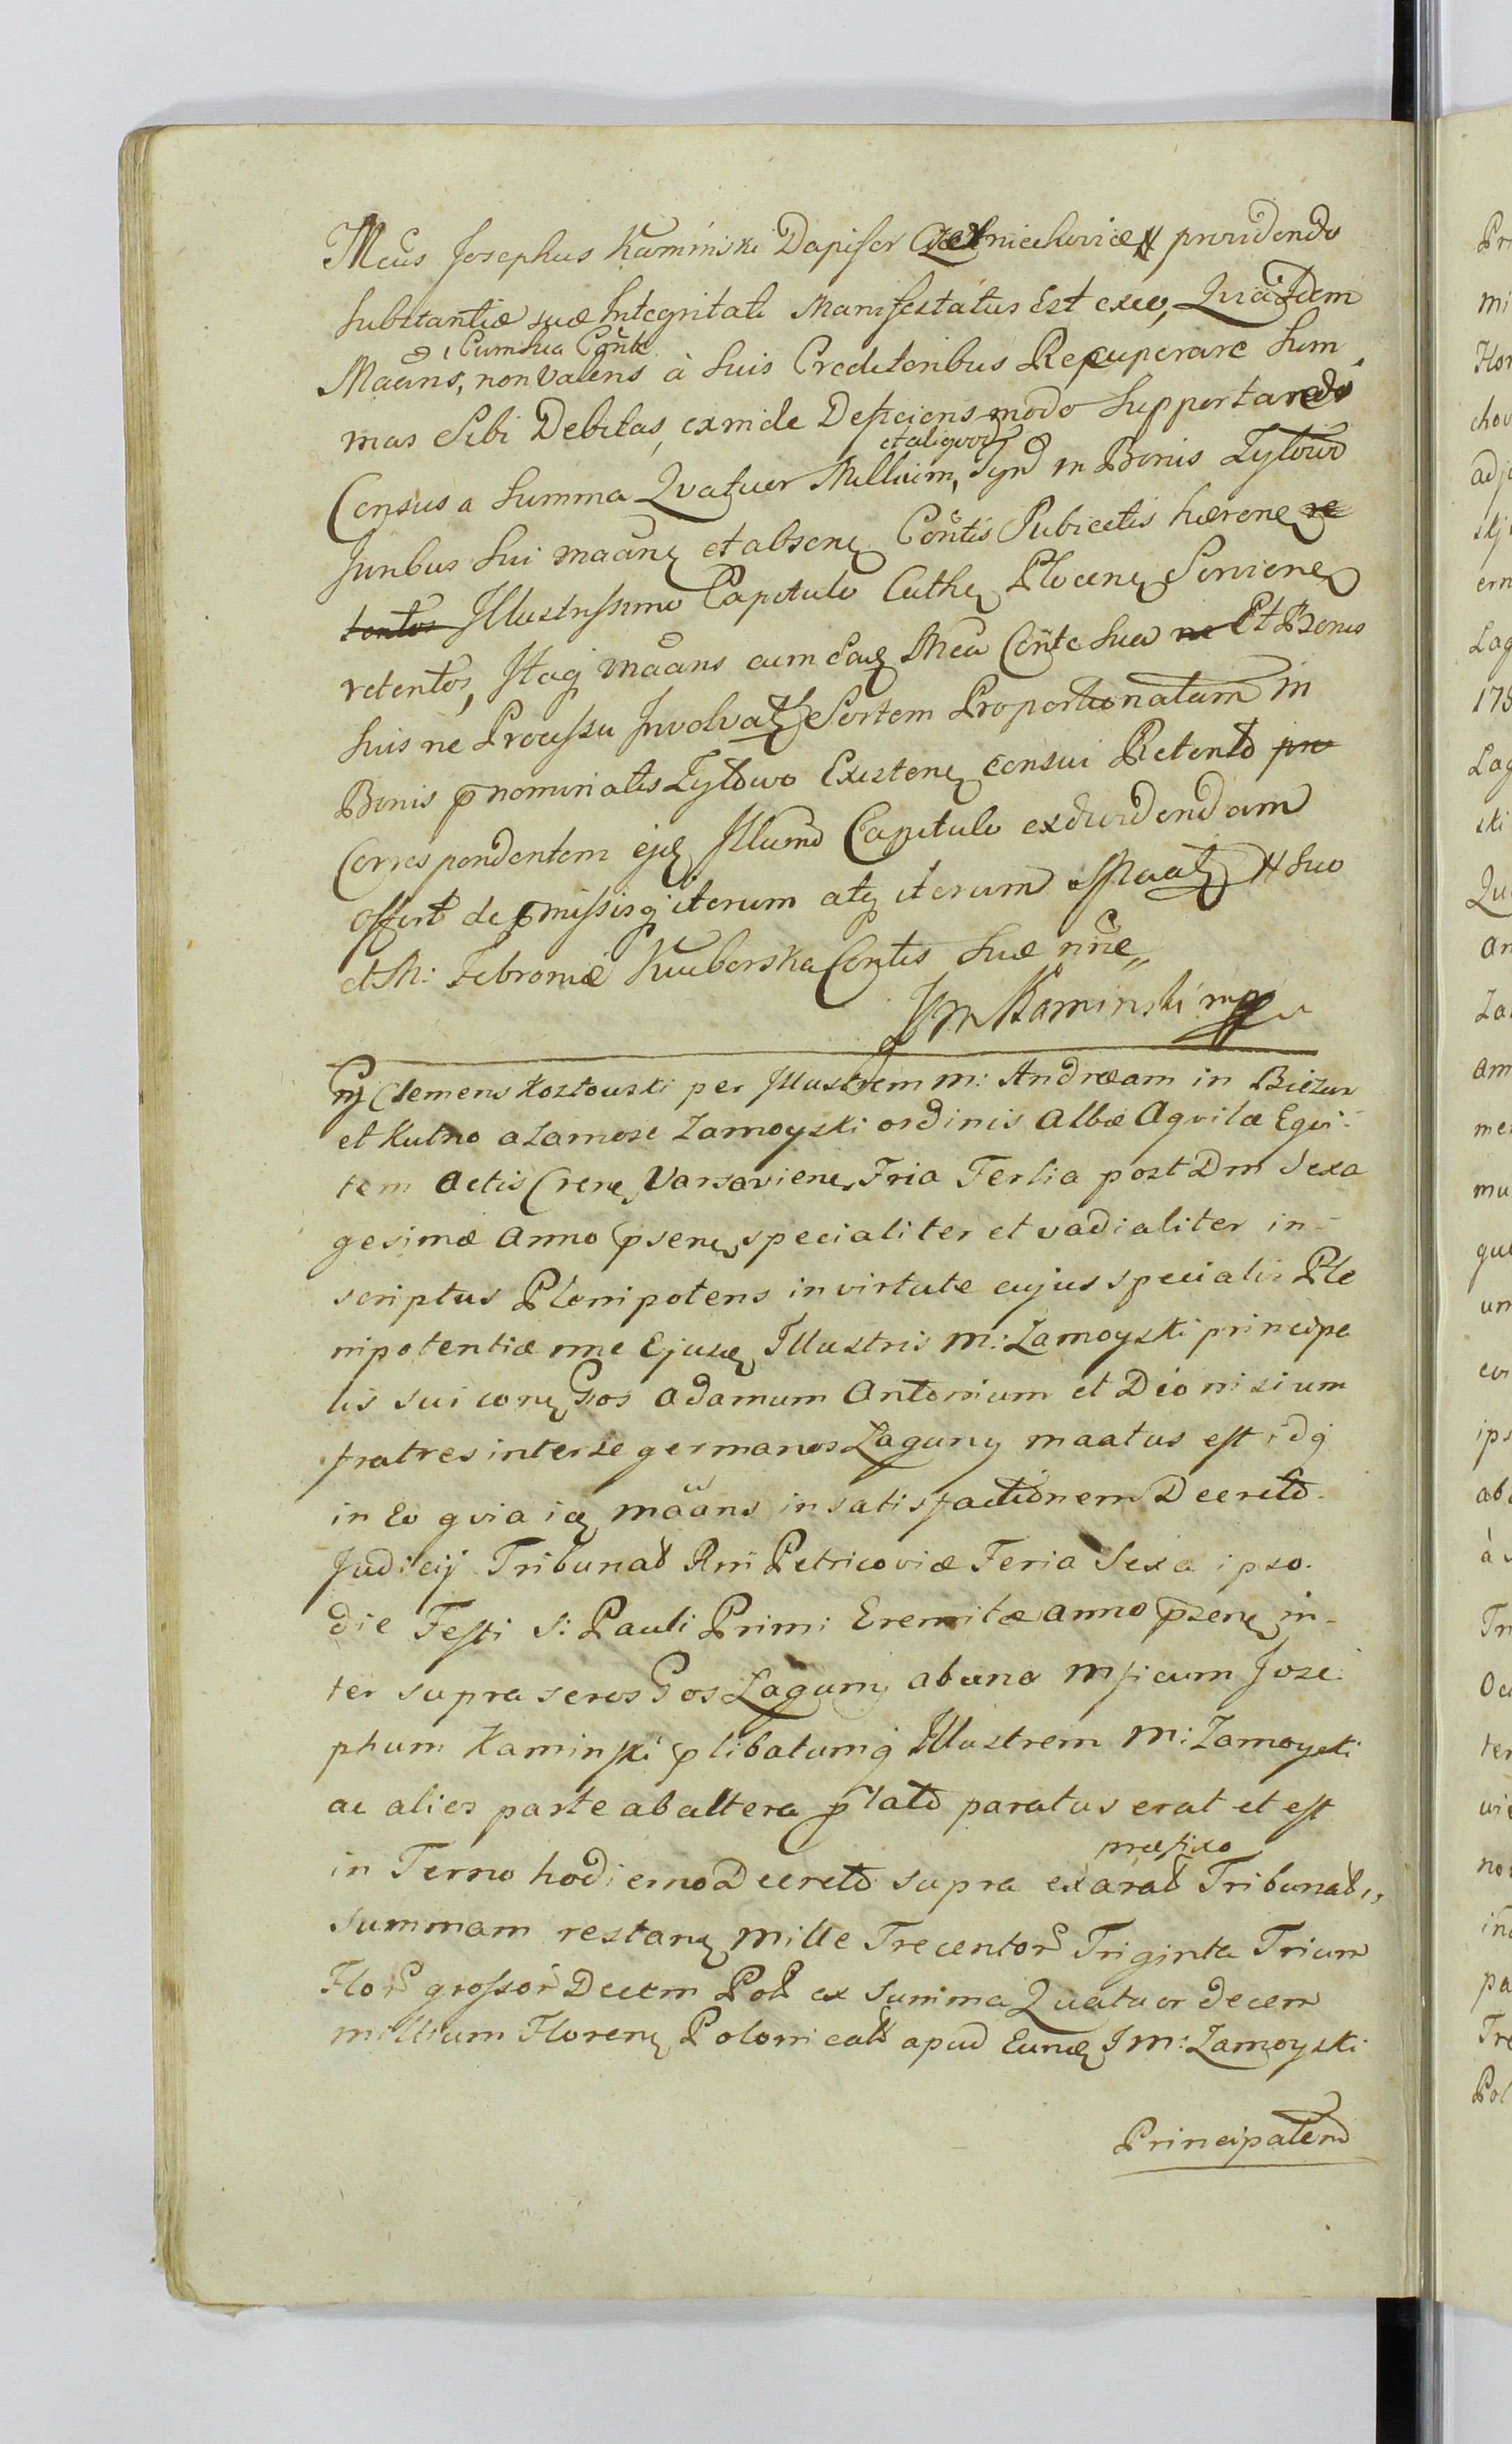 Mcus Josephus Kaminski Dapifer providendo
Substantiæ suæ Integritati Manifestatus Est exeo, Quia Idem
Cum sua Conte
Maans, non Valens à Suis Creditoribus Recuperare Sum
mas Sibi Debitas, exinde Deficiens modo Supportando
et aliquod
Census a Summa Quatuor Millium, in Bonis Zytowo
Juribus Sui maan et absen Contis Pubicetis hæren
tentos Illustrissimo Capitulo Cath Plocen Servien
retentos, Itaq maans cum Ead Mca Conte Sua ne Et Bonis
Suis ne Processu Involvat Sortem Proportionatam in
Bonis pnominatis Zytowo Existen censui Retento pro
Correspondentem ejd Illumo Capitulo exdividendam
offert de pmissisq iterum atq iterum Maat suo
et M: Febroniæ Kuuborska Contis Suæ nne
JM Kaminski mp
Clemens Kozłouski per Illustrem M: Andræam in Biezun
et Kutno a Zamosc Zamoyski ordinis Albæ Aqvilæ Eqvi-
tem Actis Cren Varsavien Fria Tertia post Dm Sexa
gesimæ Anno psen specialiter et vadialiter in-
scriptus Plenipotens in virtute cujus specialis Ple
nipotentiæ nne Ejusd Illustris M: Zamoyski principa
lis sui con Gos Adamum Antonium et Dionisium
fratres inter se germanos Laguny maatus est idq
in Eo qvia id maans in satisfactionem Decreto
Judicij Tribunal Rni Petricoviæ Feria Sexa ipso
die Festi S: Pauli Primi Eremitæ anno psen in-
ter supra scros Gos Laguny ab una Mficum Jose
phum Kaminski plibatumq Illustrem M: Zamoyski
ac alios parte ab altera plato paratus erat et est
præfixo
in Terno hodierno Decreto supra exarat Tribunal,,
Summam restan Mille Trecentor Triginta Trium
Flor grossor Decem Pol ex Summa Quatuor decem
millium Floren Polonical apud Eund JM: Zamoyski
Principalem